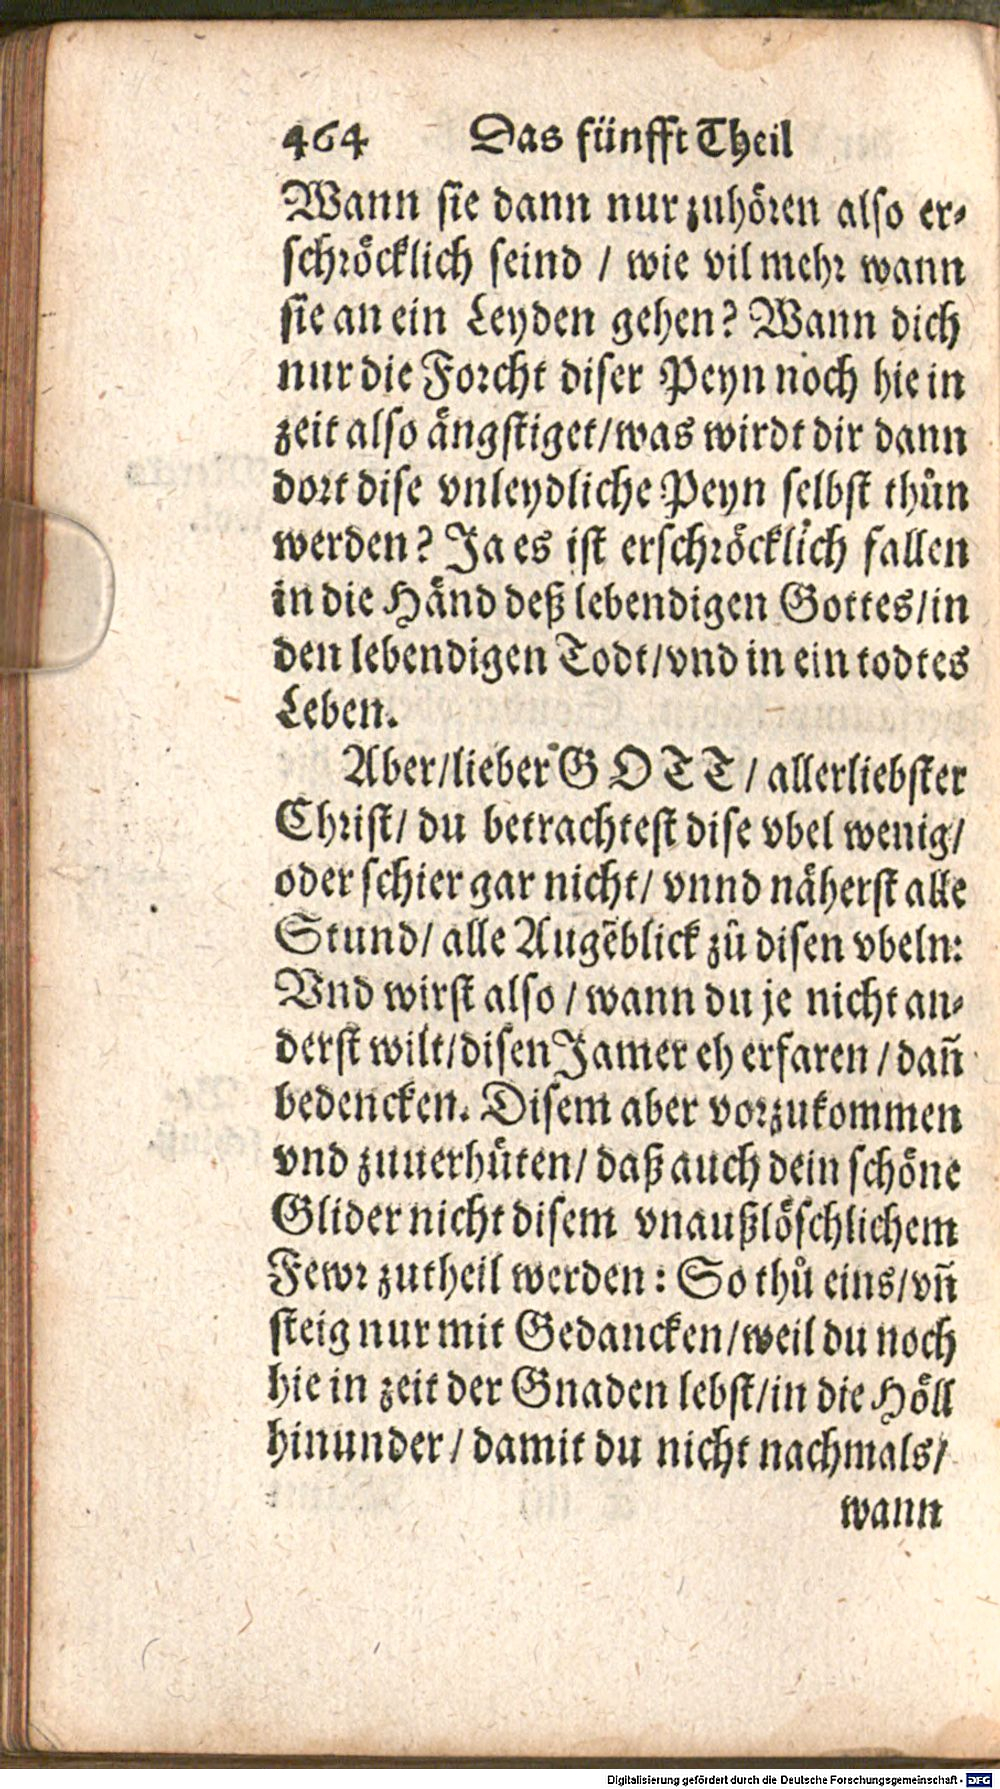 464 Das fünfft Theil
Wann sie dann nur zuhören also er-
schröcklich seind / wie vil mehr wann
sie an ein Leyden gehen? Wann dich
nur die Forcht diser Peyn noch hie in
zeit also ängstiget/was wirdt dir dann
dort dise vnleydliche Peyn selbst thůn
werden? Ja es ist erschröcklich fallen
in die Händ deß lebendigen Gottes/in
den lebendigen Todt/vnd in ein todtes
Leben.
Aber/lieber GOTT/ allerliebster
Christ/ du betrachtest dise vbel wenig/
oder schier gar nicht/ vnnd näherst alle
Stund/ alle Augẽblick zů disen vbeln:
Vnd wirst also / wann du je nicht an-
derst wilt/disen Jamer eh erfaren / dañ
bedencken. Disem aber vorzukommen
vnd zuuerhüten/ daß auch dein schöne
Glider nicht disem vnaußlöschlichem
Fewr zutheil werden: So thů eins/vñ
steig nur mit Gedancken/weil du noch
hie in zeit der Gnaden lebst/in die Höll
hinunder / damit du nicht nachmals/
wann
Digitalisierung gefördert durch die Deutsche Forschungsgemeinschaft - DFG